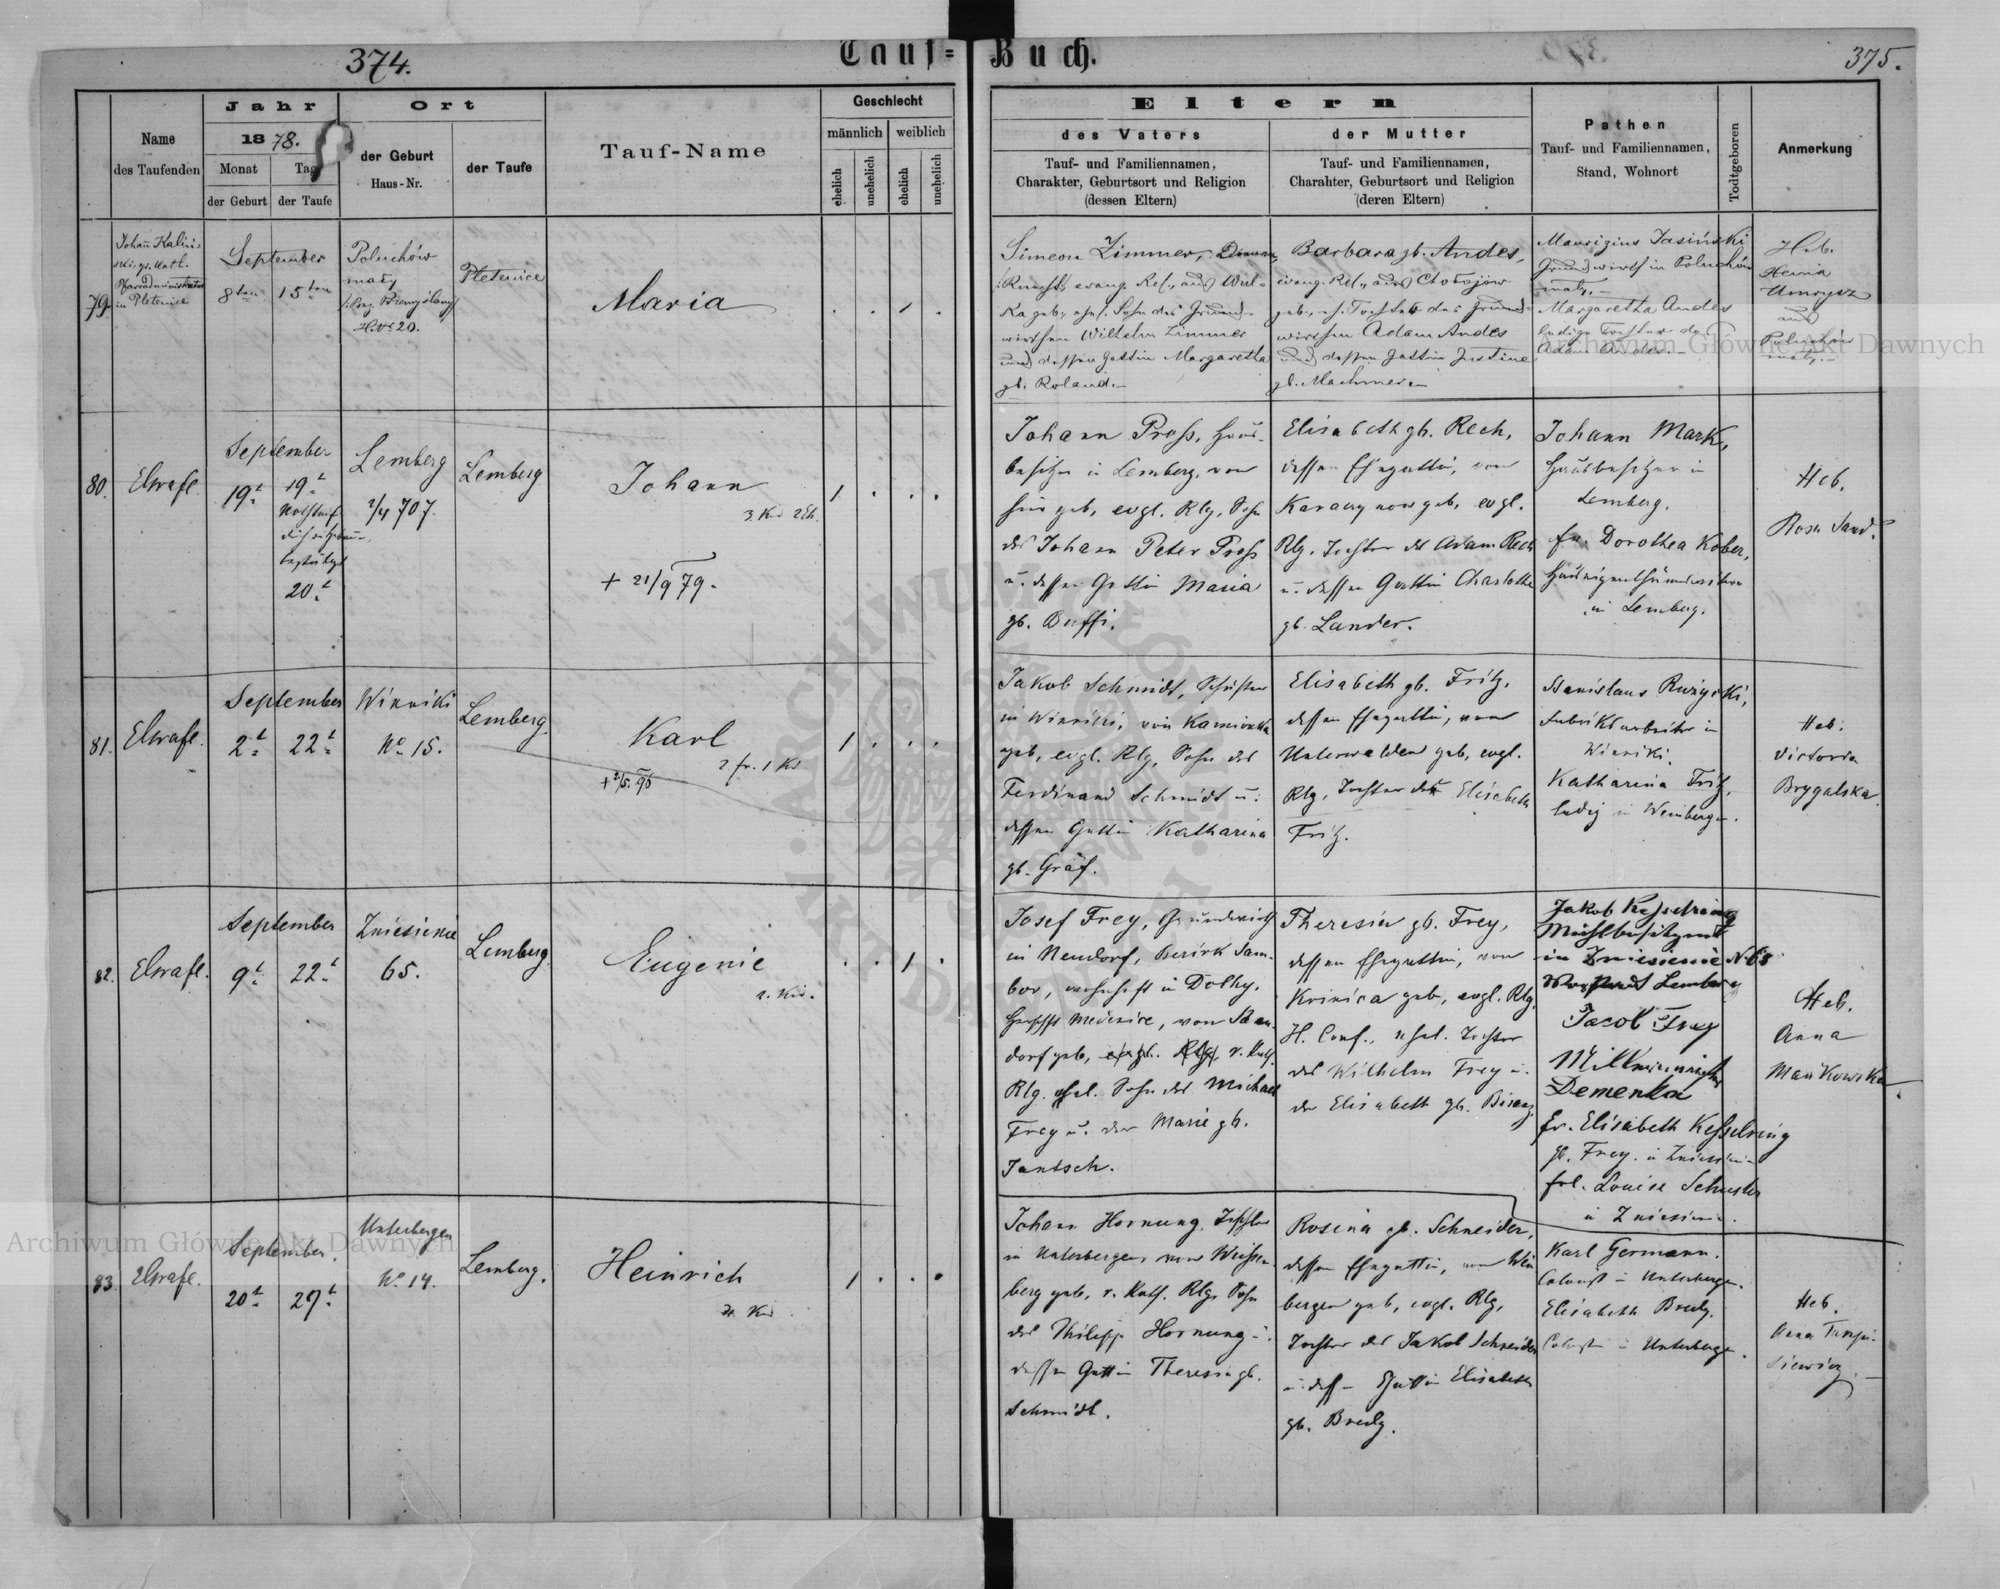 374.
Tauf=
Buch.
375.
Name
des Taufenden
Jahr
1878.
Monat
Tag
der Geburt
der Taufe
Ort
der Geburt
Haus-Nr.
der Taufe
Tauf-Name
Geschlecht
männlich
weiblich
ehelich
unehelich
ehelich
unehelich
Eltern
des Vaters
Tauf- und Familiennamen,
Charakter, Geburtsort und Religion
(dessen Eltern)
der Mutter
Tauf- und Familiennamen,
Charahter, Geburtsort und Religion
(deren Eltern)
Pathen
Tauf- und Familiennamen,
Stand, Wohnort
Todtgeboren
Anmerkung
79.
Johann Kalin
ski gr. kath.
Pfarradministrator
in Pletenice
September
8ten 15ten
Poluchów
mały
Nro 20.
Pletenice
Maria
Simeon Zimmer,
Knecht, evang. Rel., aus Wiel-
ka geb., ehel. Sohn des Grund-
wirthen Wilhelm Zimmer
und dessen Gattin Margaretha
gb. Roland.
Barbara gb. Andes,
evang. Rel., aus
geb., eh. Tochter des Grund-
wirthen Adam Andes
und dessen Gattin Justine
gb. Machmer.
Maurizius Jasiński
Grundwirth in Poluchów
mały.
Margaretha Andes
ledige Tochter des
Adam Andes.
Heb.
aus
Poluchów
mały.
80.
September
19t 19t
20t
Lemberg
2/4 707.
Lemberg
Johann
3. Kd 2 Eh.
+ 21/9 79.
Johann Pross, Haus-
besitzer in Lemberg, von
hier geb., evgl. Rlg, Sohn
des Johann Peter Pross
u. dessen Gattin Maria
gb. Duffi.
Elisabeth gb. Rech,
dessen Ehegattin, von
geb., evgl.
Rlg, Tochter des Adam Rech
u. dessen Gattin Charlotte
gb. Lander.
Johann Mark,
Hausbesitzer in
Lemberg.
fr. Dorothea Kober,
in Lemberg.
Heb.
Rosa Sand.
81.
September
2t 22t
Winniki
No 15.
Lemberg.
Karl
2 fr. 1 Kd.
Jakob Schmidt,
in Winniki, von Kamionka
geb., evgl. Rlg, Sohn des
Ferdinand Schmidt u.
dessen Gattin Katharina
gb. Gräf.
Elisabeth gb. Fritz,
dessen Ehegattin, von
Unterwalden geb., evgl.
Rlg, Tochter der Elisabeth
Fritz.
Stanislaus
Fabriksarbeiter in
Winniki.
Katharina Fritz,
ledig in Weinbergen.
Heb.
Victoria
Brygalska.
82.
September
9t 22t
Zniesienie
65.
Lemberg.
Eugenie
Josef Frey, Grundwirth
in Neudorf, Bezirk Sam-
bor, wohnhaft in Dolhy,
Herrschft Medenice, von
dorf geb., evgl. Rlg. r. kath.
Rlg. ehel. Sohn des Michael
Frey u. der Marie gb.
Jantsch.
Theresia gb. Frey,
dessen Ehegattin, von
Krinica geb., evgl. Rlg,
H. Conf., ehel. Tochter
des Wilhelm Frey u.
der Elisabeth gb. Bisanz.
Jakob Kesselring
Mühlbesitzer
in Zniesienie N. 65
Jacob Frey
Demenka
fr. Elisabeth Kesselring
gb. Frey in Zniesienie
frl. Louise Schuster
in Zniesienie.
Heb.
Anna
Mańkowska.
83.
September.
20t 29t
Unterbergen
No 14.
Lemberg.
Heinrich
4. Kd.
Johann Hornung, Tischler
in Unterbergen, von Weissen-
berg geb., r. kath. Rlg, Sohn
des Philipp Hornung u.
dessen Gattin Theresia gb.
Schmidt.
Rosina gb. Schneider,
dessen Ehegattin, von Wein
bergen geb., evgl. Rlg,
Tochter des Jakob Schneider
u. dess Gattin Elisabeth
gb. Bredy.
Karl Germann.
Colonist in Unterbergen.
Elisabeth Bredy.
in Unterbergen.
Heb.
Anna
Archiwum Główne Akt Dawnych
Archiwum Główne Akt Dawnych